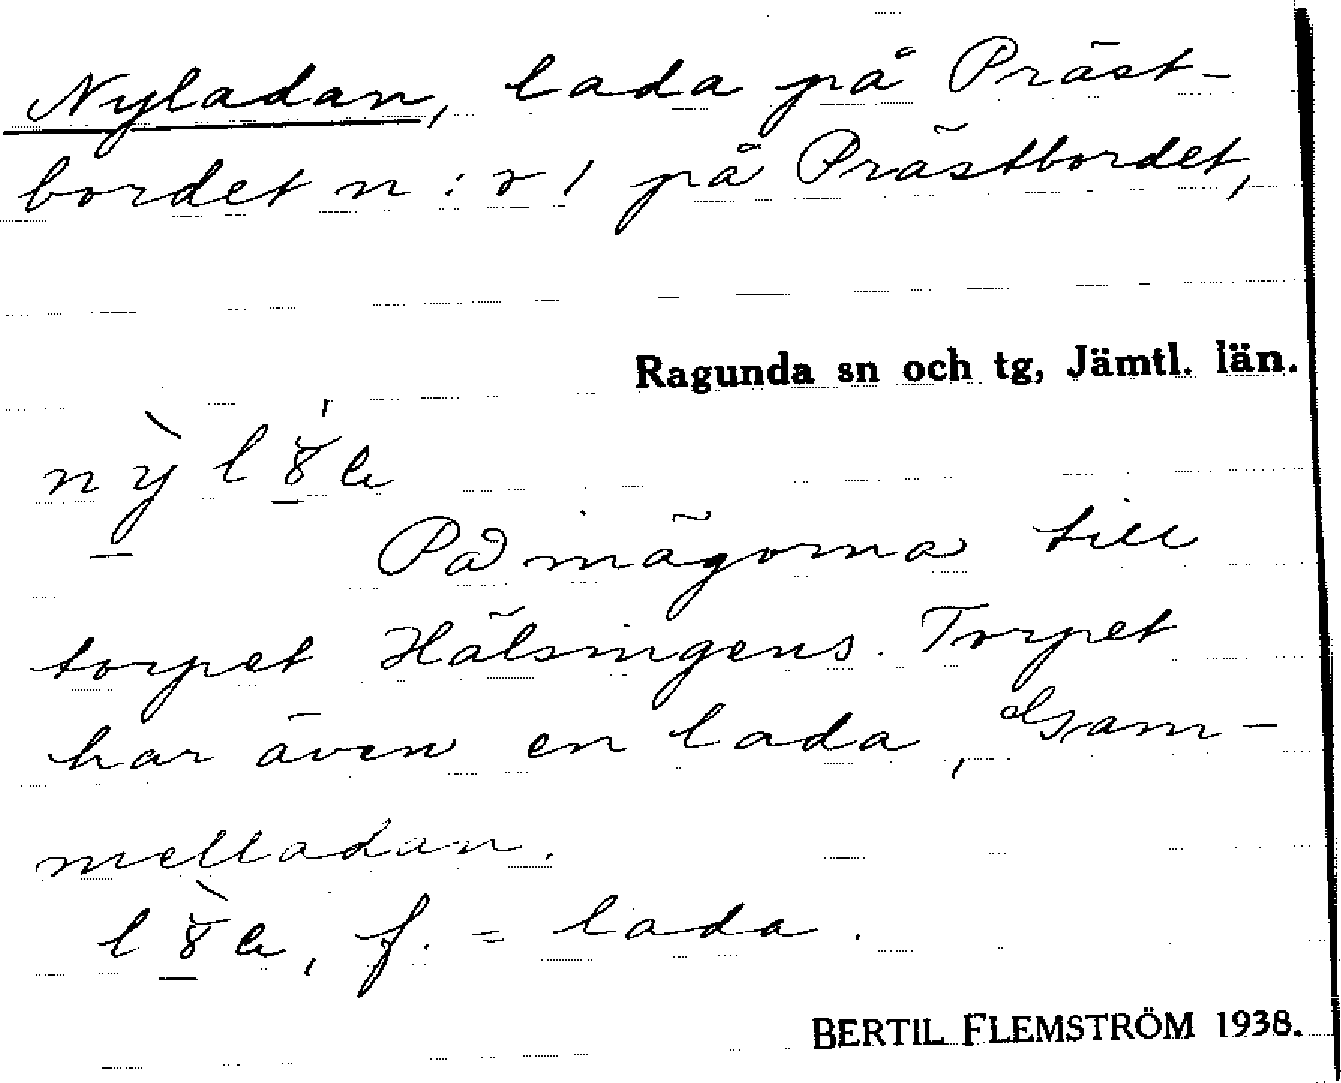 Nyladan, lada på Präst-
bordet n:r 1 på Prästbordet,
Ragunda sn och tg, Jämtl. län.
På mägorna till
torpet Hälsingens. Torpet
har även en lada, Gam-
melladan.
f. = lada.
BERTIL FLEMSTRÖM 1938.